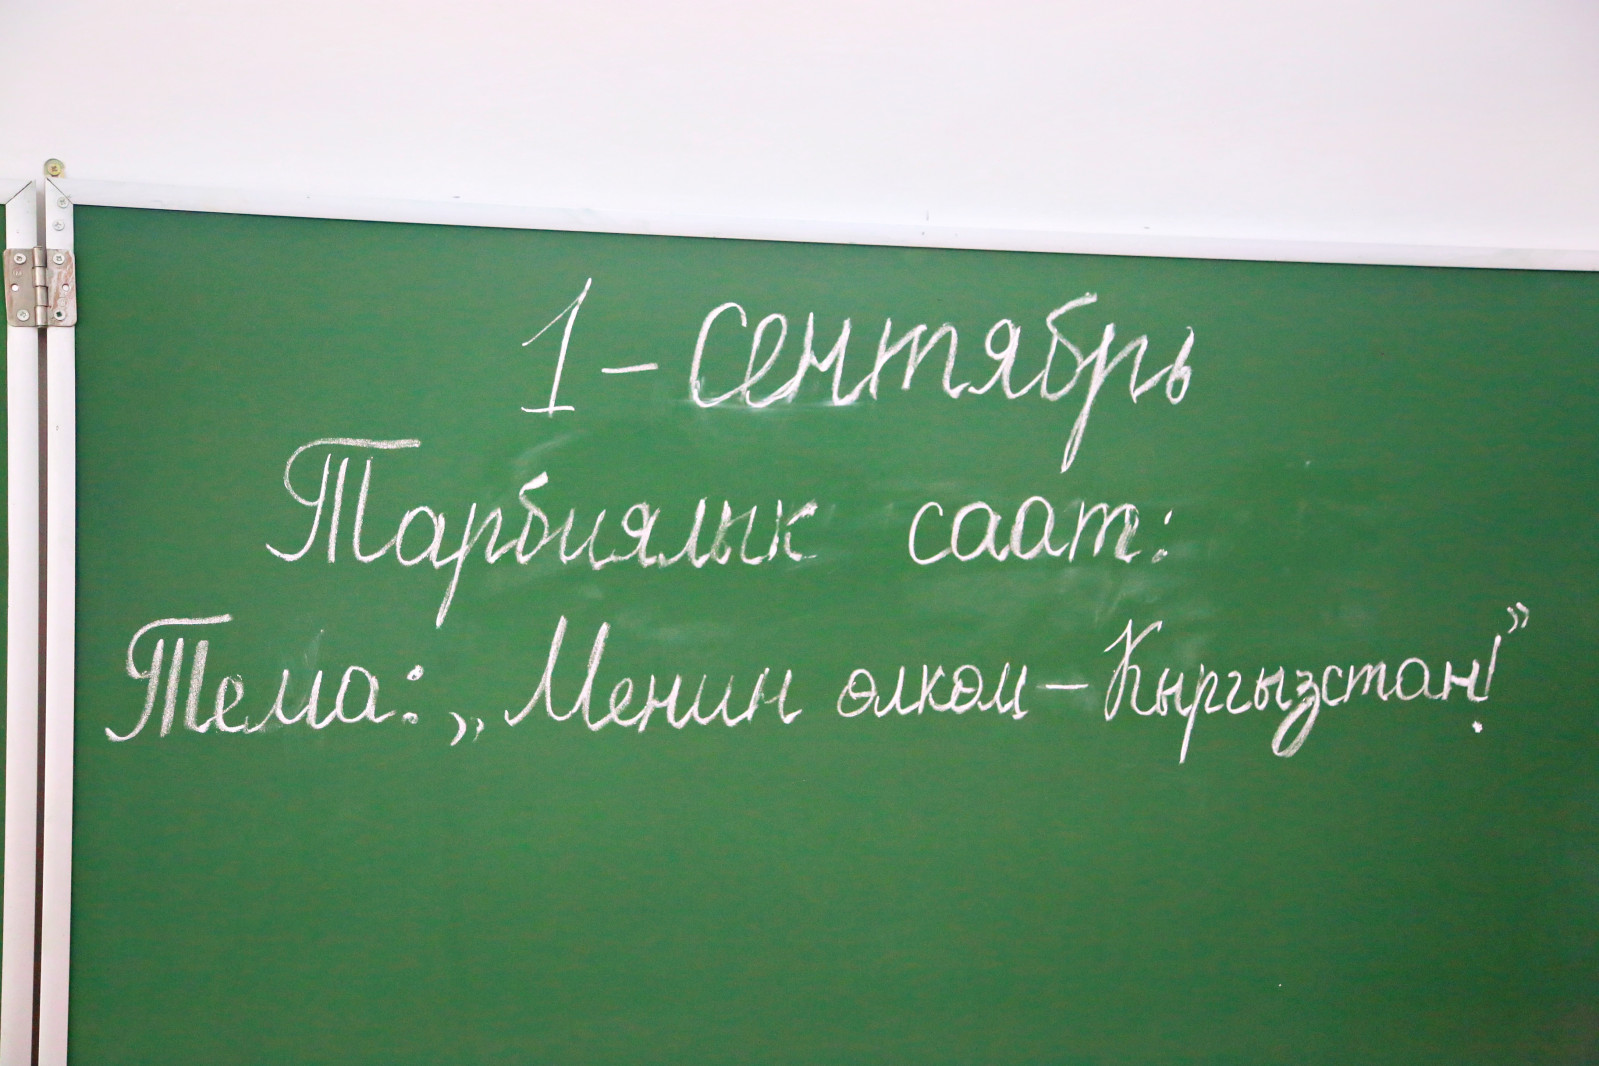 1 – сентябрь
Тарбиялык саат:
Тема: „Менин өлкөм – Кыргызстан!”